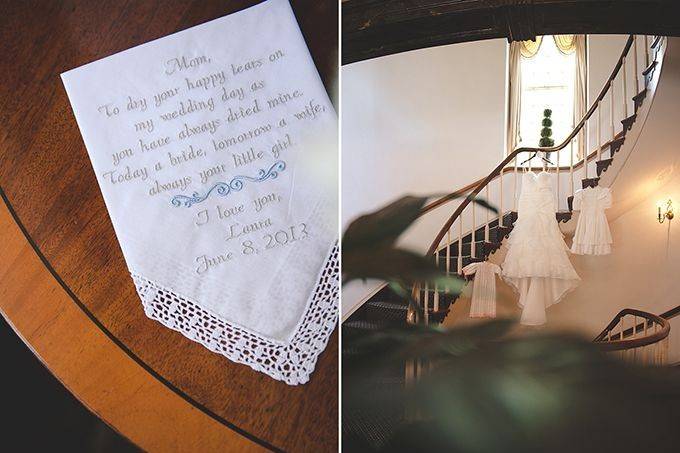 Mom,
To dry your happy tears on
my wedding day as
you have always dried mine.
Today a bride, tomorrow a wife,
always your little girl.
I love you,
Laura
June 8, 2013